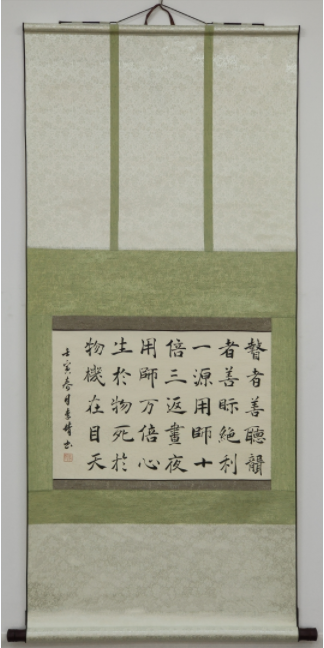 瞽者善聽聾
者善眎絶利
一源用師十
倍三返晝夜
用師万倍心
生於物死於
物機在目天
壬寅春月李晴书